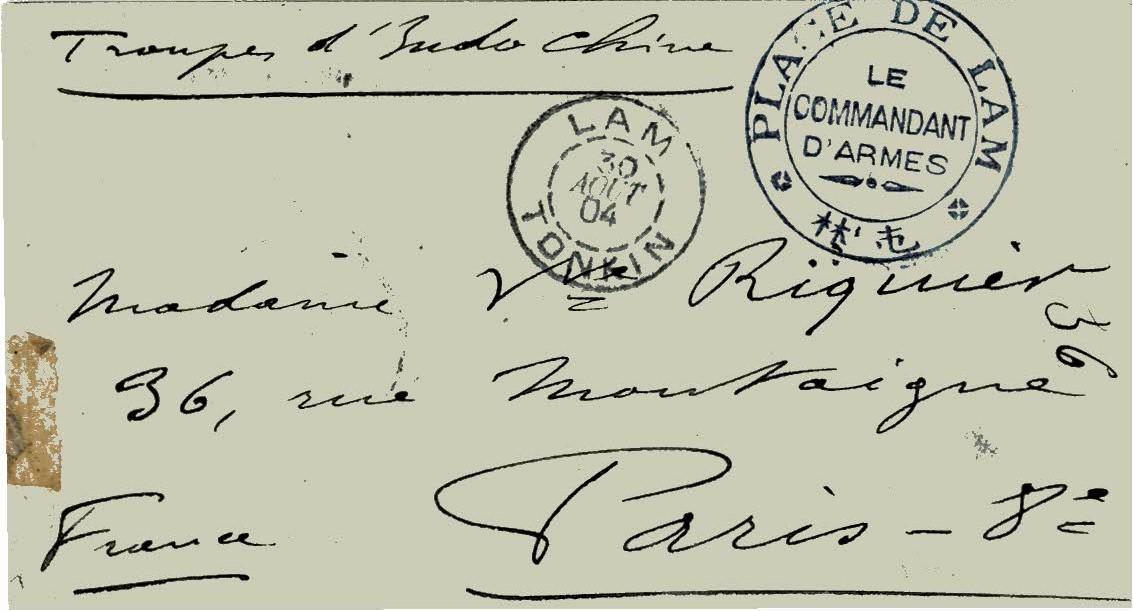 Troupes d'Indo Chine
PLACE DE LAM
LE
COMMANDANT
D'ARMES
LAM
30
AOUT
04
TONKIN
Madame Vve Riquier
36
36, rue Montaigne
Paris - 8e
France